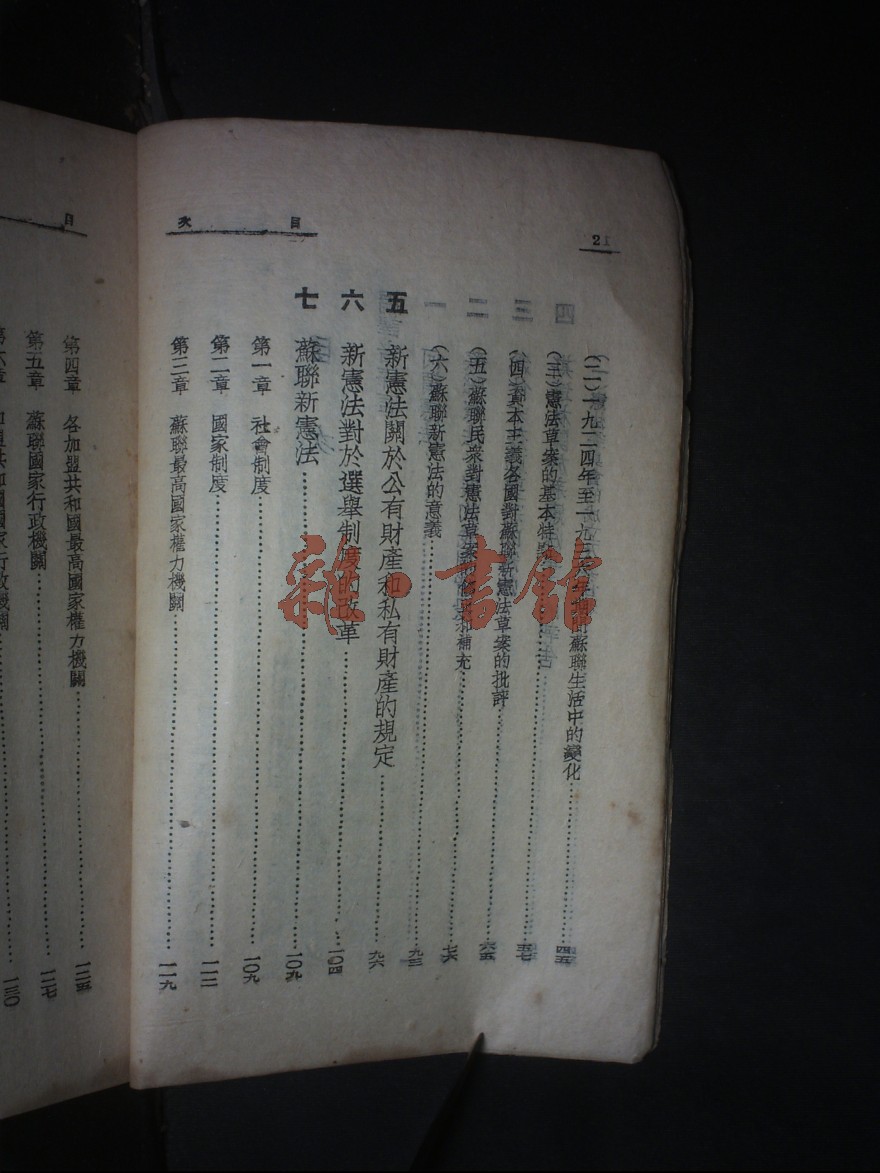 目次
2
(二)一九二四年至一九三六年期間蘇聯生活中的變化……四五
(三)憲法草案的基本特點……五七
(四)資本主義各國對蘇聯新憲法草案的批評……六五
(五)蘇聯民衆對憲法草案的修正和補充……七六
(六)蘇聯新憲法的意義……九三
五 新憲法關於公有財產和私有財產的規定……九六
六 新憲法對於選舉制度的改革……一〇四
七 蘇聯新憲法……一〇九
第一章 社會制度……一〇九
第二章 國家制度……一一二
第三章 蘇聯最高國家權力機關……一一九
目
第四章 各加盟共和國最高國家權力機關……一二五
第五章 蘇聯國家行政機關……一二七
第六章 加盟共和國國家行政機關……一三〇
雜·書館